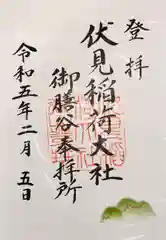 登拝
伏見稲荷大社
御膳谷奉拝所
令和五年二月五日